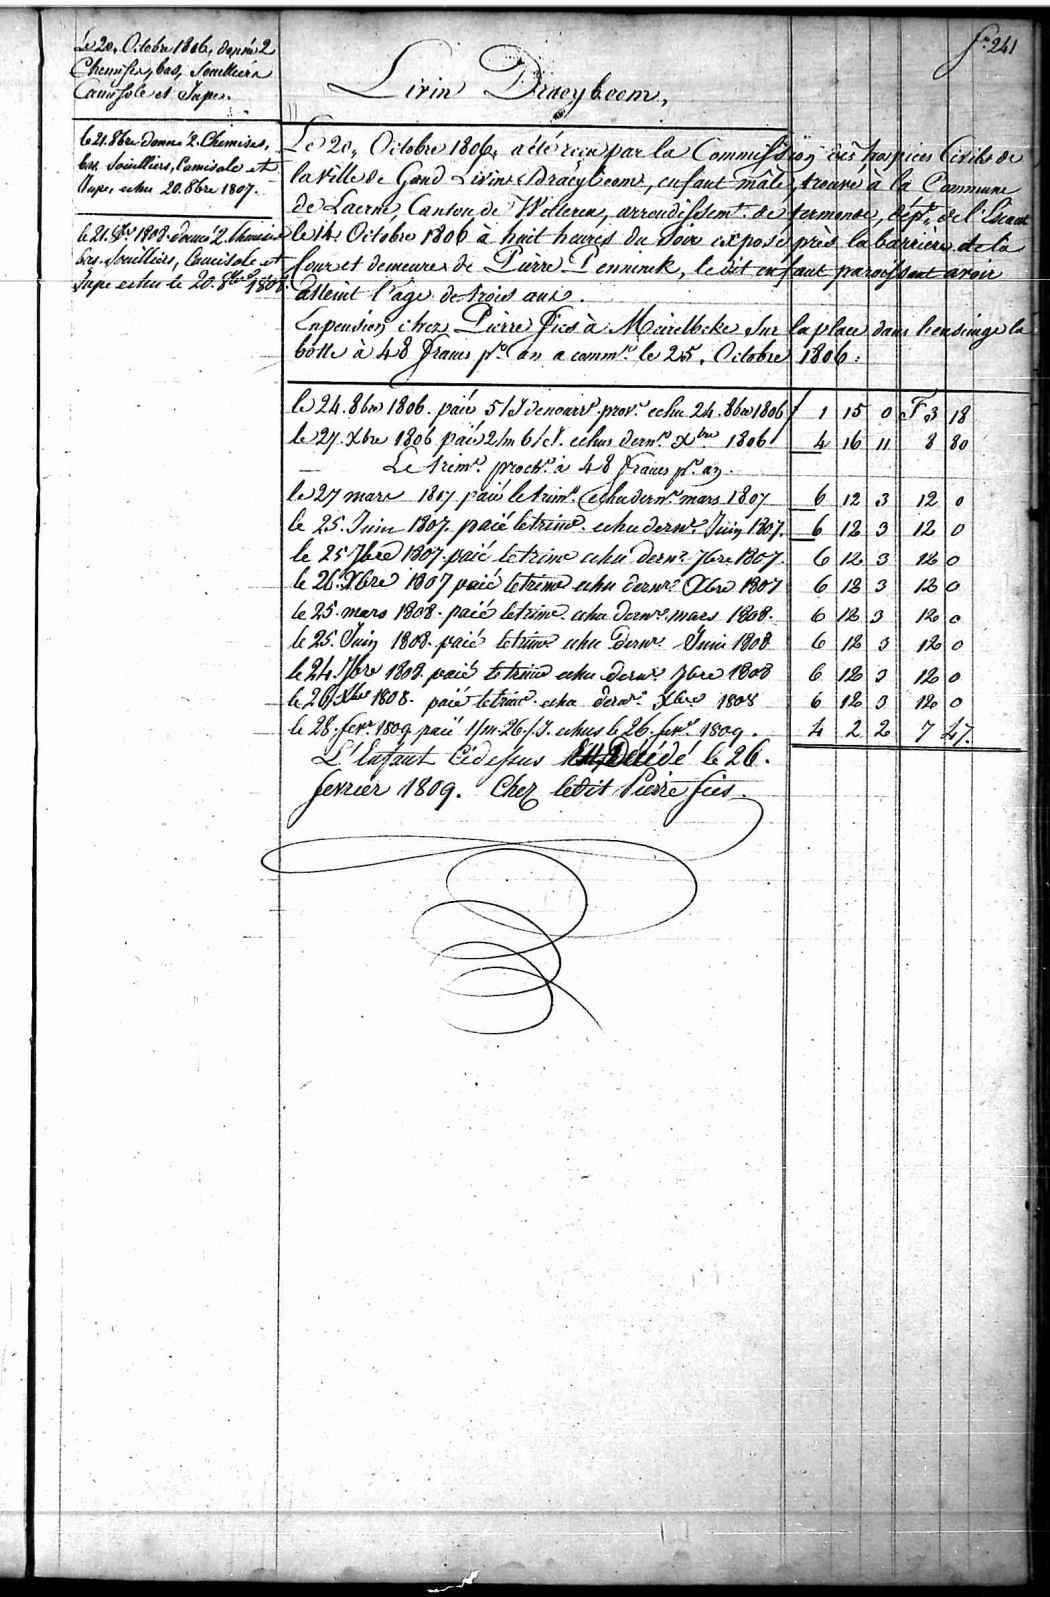 fo. 241
Livin Draeybeom,
Le 20, Octobre 1806, donné 2
Chemises, bas, Soulliers
Camisole et Jupe.
le 21. 8bre donné 2. Chemises,
bas, Soulliers, Camisole et
Jupe, echu 20. 8bre 1807.
le 21. 8bre 1808. donné 2. Chemises
bas, Soulliers, Camisole et
Jupe echu le 20. 8bre 1808.
Le 20, Octobre 1806, a été recu par la Commission des hospices Civils de
la ville de Gand Livin Draeybeom, enfant mâle, trouvé à la Commune
de Laerne, Canton de Wetteren, arrondissemt. de termonde, dépt. de l'Escaut
le 14 Octobre 1806 à huit heures du Soir exposé près la barrière de la
Cour et demeure de Pierre Penninck, le dit enfant paroissant avoir
atteint l'âge de trois ans.
En pension chez Pierre fies à Meirelbeke Sur la place dans l'enseinge la
botte à 48 francs pr. an a commce. le 25, Octobre 1806:
le 24. 8bre 1806. paié 5/J de nourre. prov. echu 24. 8bre 1806 1 15 0 F 3 18
le 27. Xbre 1806 paié 2/m 6/J. echus dernr. Xbre 1806 4 16 11 8 80
Le trimre. procht. à 48 francs pr. an.
le 27 mars 1807 paié le trimre. echu dernr. mars 1807 6 12 3 12 0
le 25. Juin 1807. paié le trime. echu dernr. Juin 1807. 6 12 3 12 0
le 25 7bre 1807. paié le trime echu dernr. 7bre 1807. 6 12 3 12 0
le 26. Xbre 1807 paié le trime echu dernr. Xbre 1807 6 12 3 12 0
le 25. mars 1808. paié le trime. echu dernr. mars 1808. 6 12 3 12 0
le 25. Juin 1808. paié le trime echu dernr. Juin 1808 6 12 3 12 0
le 24 7bre 1808. paié le trime echu dernr. 7bre 1808 6 12 3 12 0
le 26 Xbre 1808. paié le trime. echu dernr. Xbre 1808 6 12 3 12 0
le 28. fevr. 1809 paié 1/m. 26./J. echus le 26. fevr. 1809. 4 2 2 7 47.
L'Enfant Cidessus Décédé le 26.
fevrier 1809. Chez ledit Pierre fies.